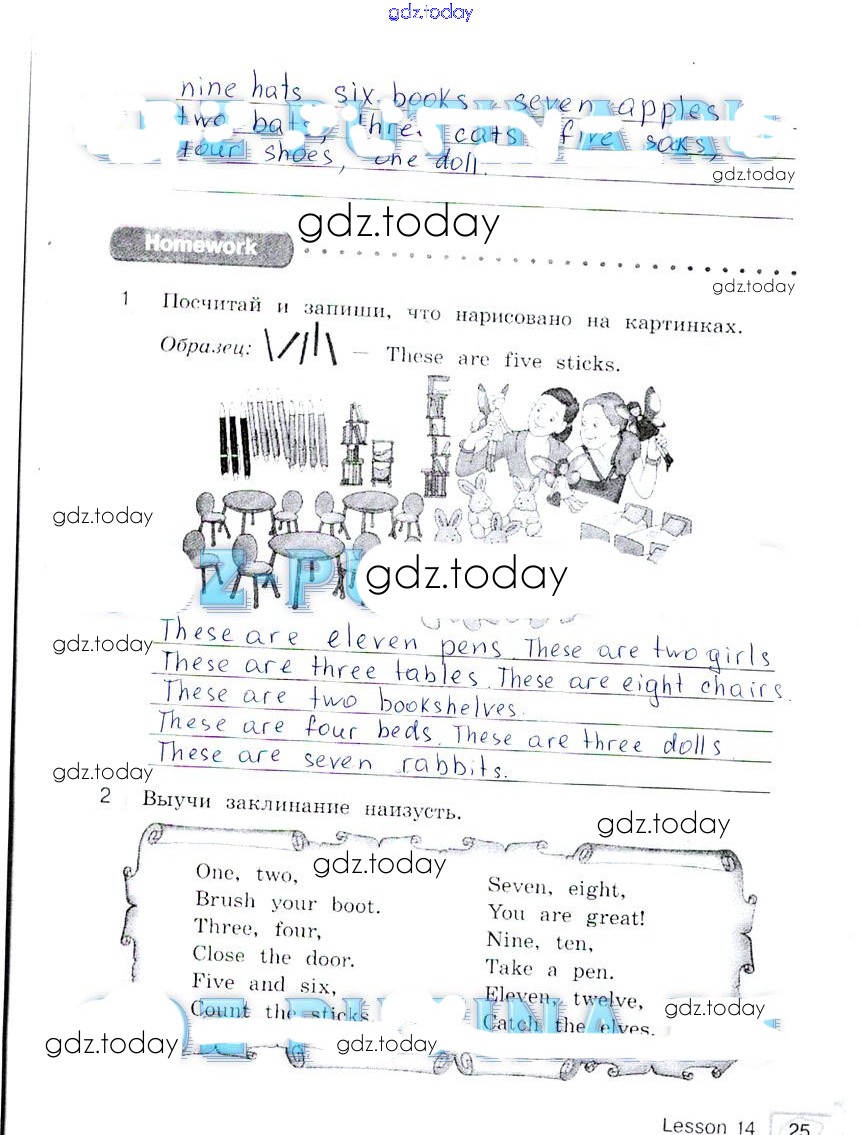 gdz.today
nine hats, six books, seven apples
two bats, three cats, five soks,
four shoes, one doll.
gdz.today
Homework
gdz.today
gdz.today
1 Посчитай и запиши, что нарисовано на картинках.
Образец: — These are five sticks.
gdz.today
gdz.today
These are eleven pens. These are two girls
gdz.today
These are three tables. These are eight chairs.
These are two bookshelves.
These are four beds. These are three dolls
These are seven rabbits.
gdz.today
2 Выучи заклинание наизусть.
gdz.today
gdz.today
One, two,
Brush your boot.
Three, four,
Close the door.
Five and six,
Count the sticks.
Seven, eight,
You are great!
Nine, ten,
Take a pen.
Eleven, twelve,
Catch the elves.
gdz.today
gdz.today
gdz.today
Lesson 14 25